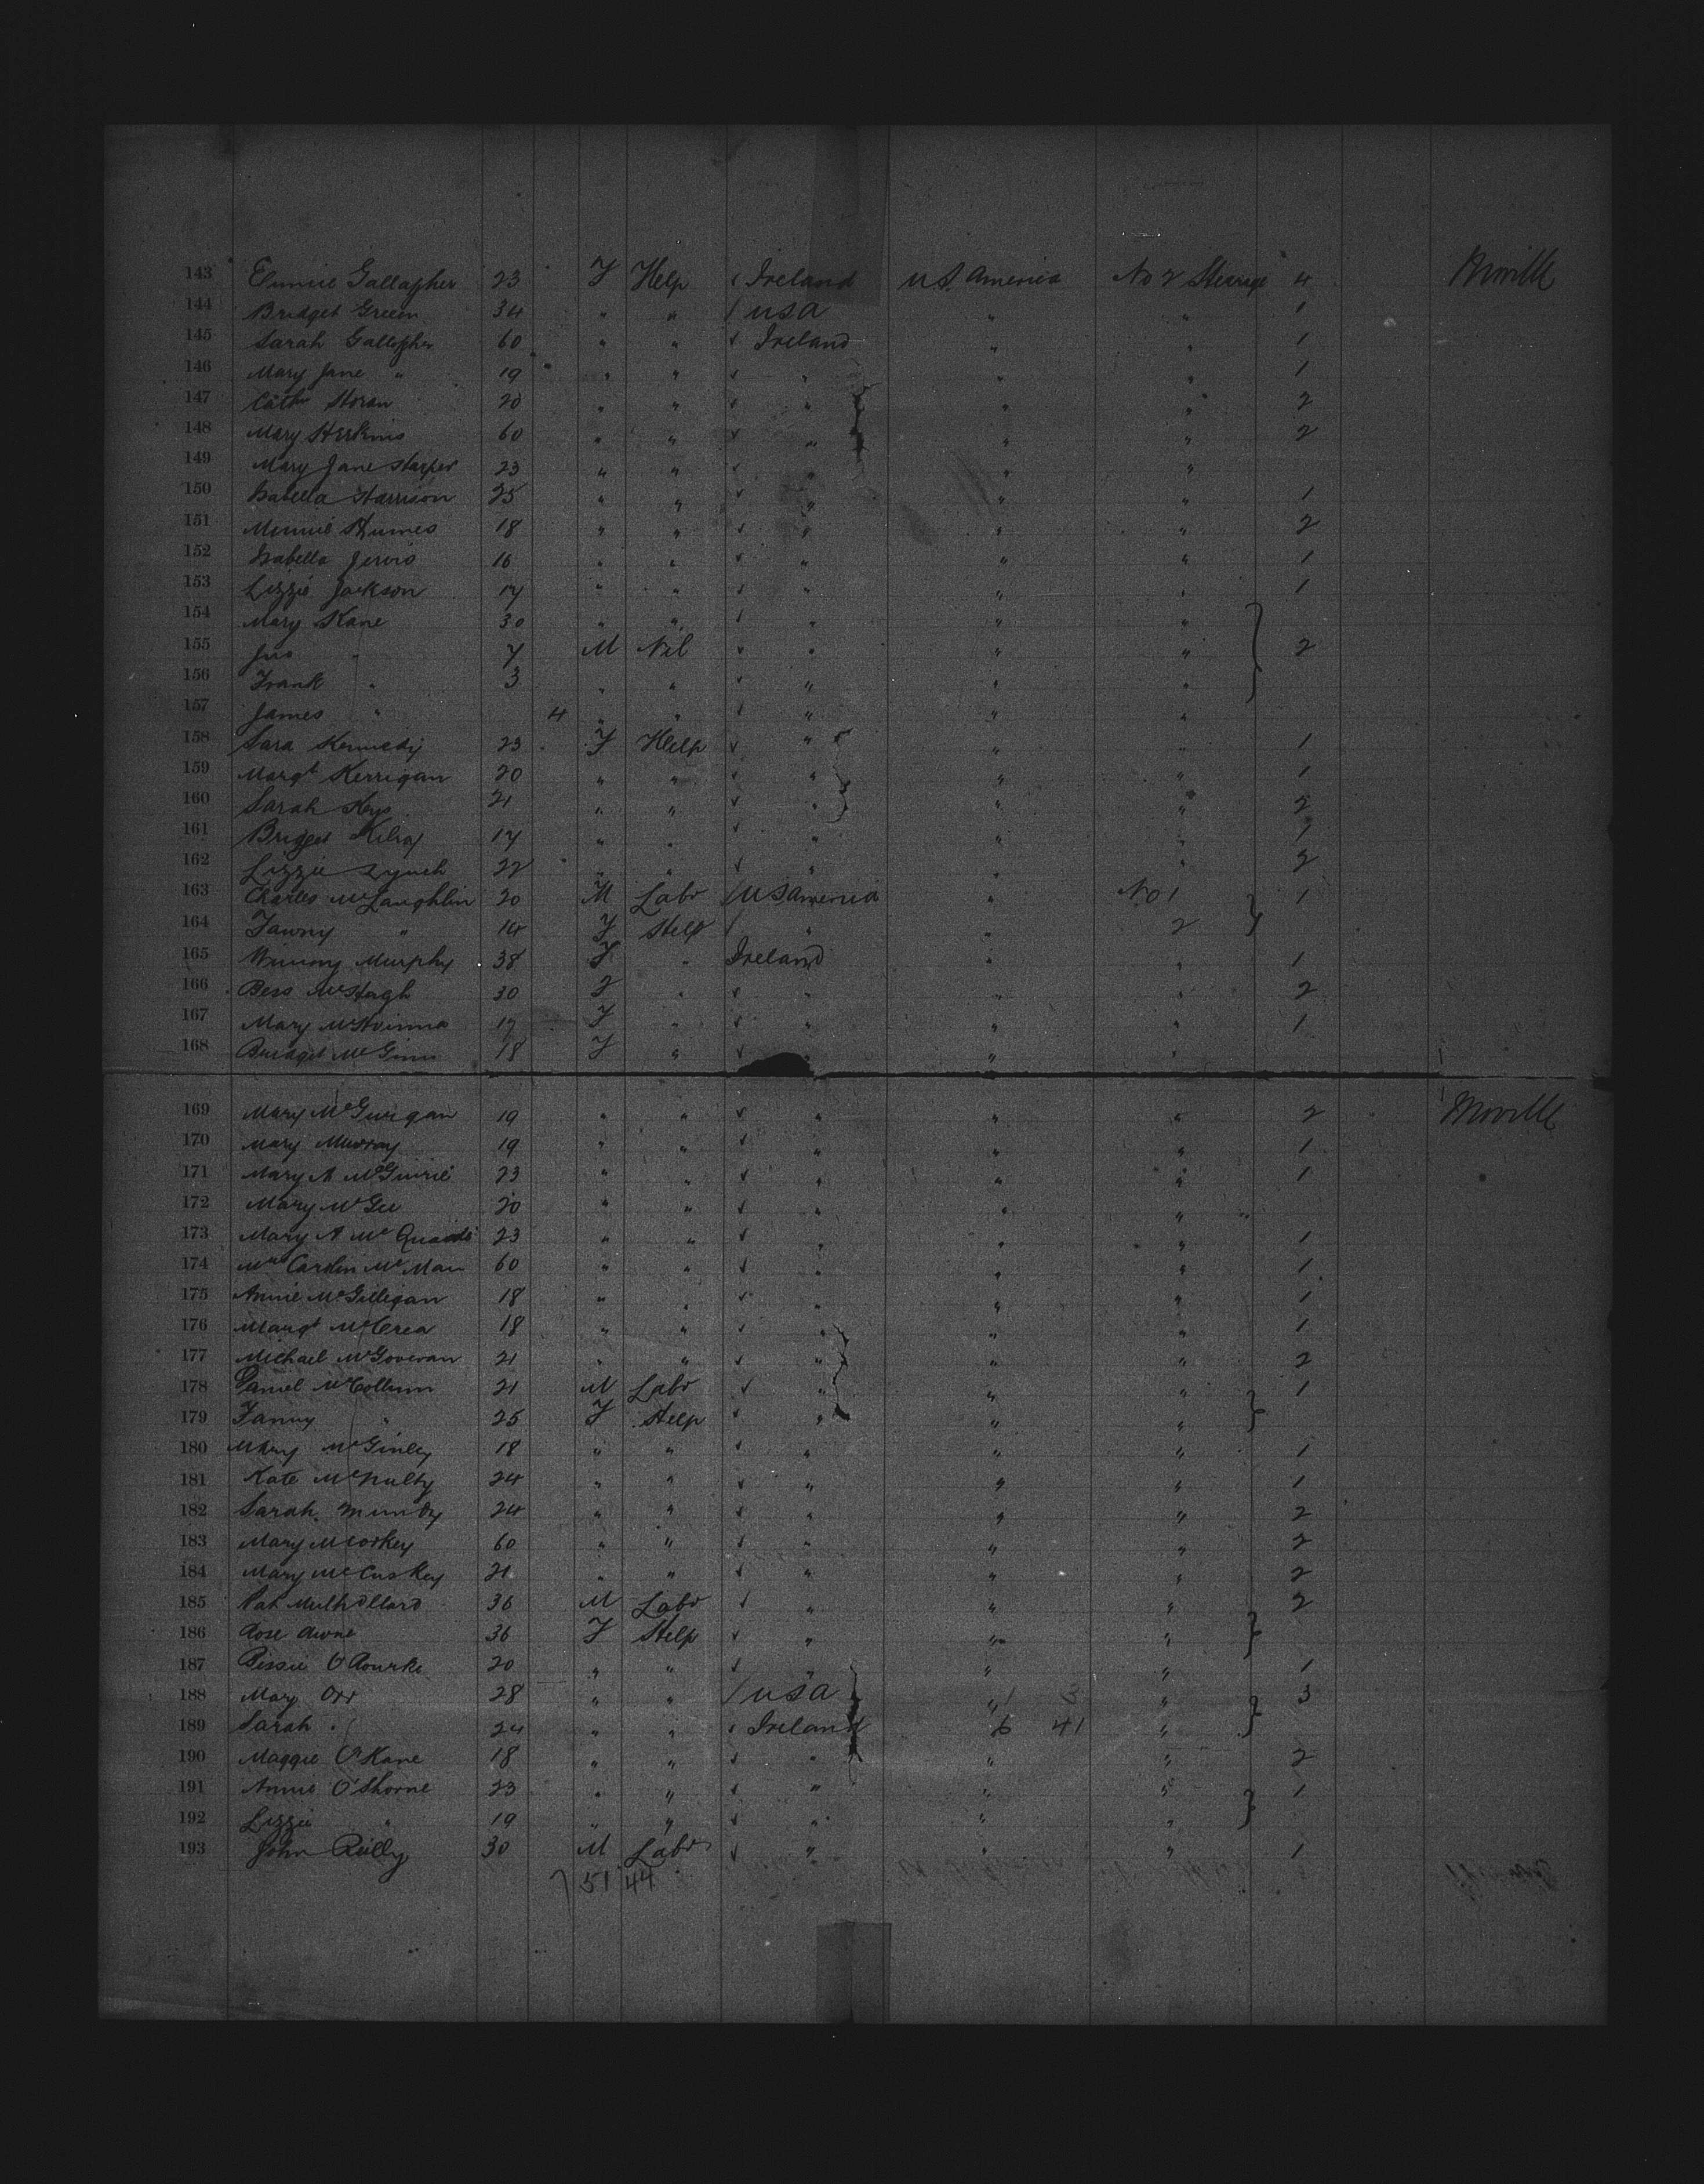 143 Gallagher 23 F Help Ireland U.S. America No 2 Steerage 4 Moville
144 Bridget Green 34 " " USA " " 1
145 Sarah Gallagher 60 " " Ireland " " 1
146 Mary Jane " 19 " " " " " 1
147 Cath 20 " " " " " 2
148 Mary 60 " " " " " 2
149 Mary Jane Harper 23 " " " " "
150 Isabella Harrison 25 " " " " " 1
151 Minnie Humes 18 " " " " " 2
152 Isabella Jervis 16 " " " " " 1
153 Lizzie Jackson 17 " " " " " 1
154 Mary Kane 30 " " " " "
155 Jno " 7 M Nil " " " 2
156 Frank " 3 " " " " "
157 James " 4 " " " " "
158 Sara Kennedy 23 F Help " " " 1
159 Margt Kerrigan 20 " " " " " 1
160 Sarah Keys 21 " " " " " 2
161 Bridget 17 " " " " " 1
162 Lizzie Lynch 22 " " " " " 2
163 Charles McLaughlin 20 M Labr US America " No 1 1
164 Fanny " 14 F Help " " 2
165 Murphy 38 F " Ireland " " 1
166 Bess McHugh 30 F " " " " 2
167 Mary 17 F " " " " 1
168 Bridget McGinn 18 F " " " "
169 Mary McGuigan 19 " " " " " 2 Moville
170 Mary Murray 19 " " " " " 1
171 Mary A McGuire 23 " " " " " 1
172 Mary McGee 20 " " " " "
173 Mary A McQuaide 23 " " " " " 1
174 60 " " " " " 1
175 Annie McGilligan 18 " " " " " 1
176 Margt McCrea 18 " " " " " 1
177 Michael McGoveran 21 " " " " " 2
178 Daniel McCollum 21 M Labr " " " 1
179 Fanny " 25 F Help " " "
180 Mary McGinley 18 " " " " " 1
181 Kate McNulty 24 " " " " " 1
182 Sarah 24 " " " " " 2
183 Mary McCorkey 60 " " " " " 2
184 Mary McCuskey 21 " " " " " 2
185 Pat 36 M Labr " " " 2
186 Rose 36 F Help " " "
187 Bessie O'Rourke 20 " " " " " 1
188 Mary Orr 28 " " USA " 1 3 " 3
189 Sarah " 24 " " Ireland 6 41 "
190 Maggie O'Kane 18 " " " " " 2
191 Annie 23 " " " " " 1
192 Lizzie " 19 " " " " "
193 John Reilly 30 M Labr " " " 1
51 44